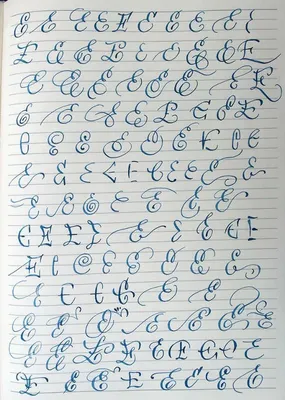 E E E E E E E E E E E
E E E E E E E E E
E E E E E E E E
E E E E E E E E
E E E E E E E E E
E E E E E E E E E E
E E E E E E E
E E E E E E E E E
E E E E E E E E
E E E E E E
E E E E E E E
E E E E E E E E E
E E E E E E E E